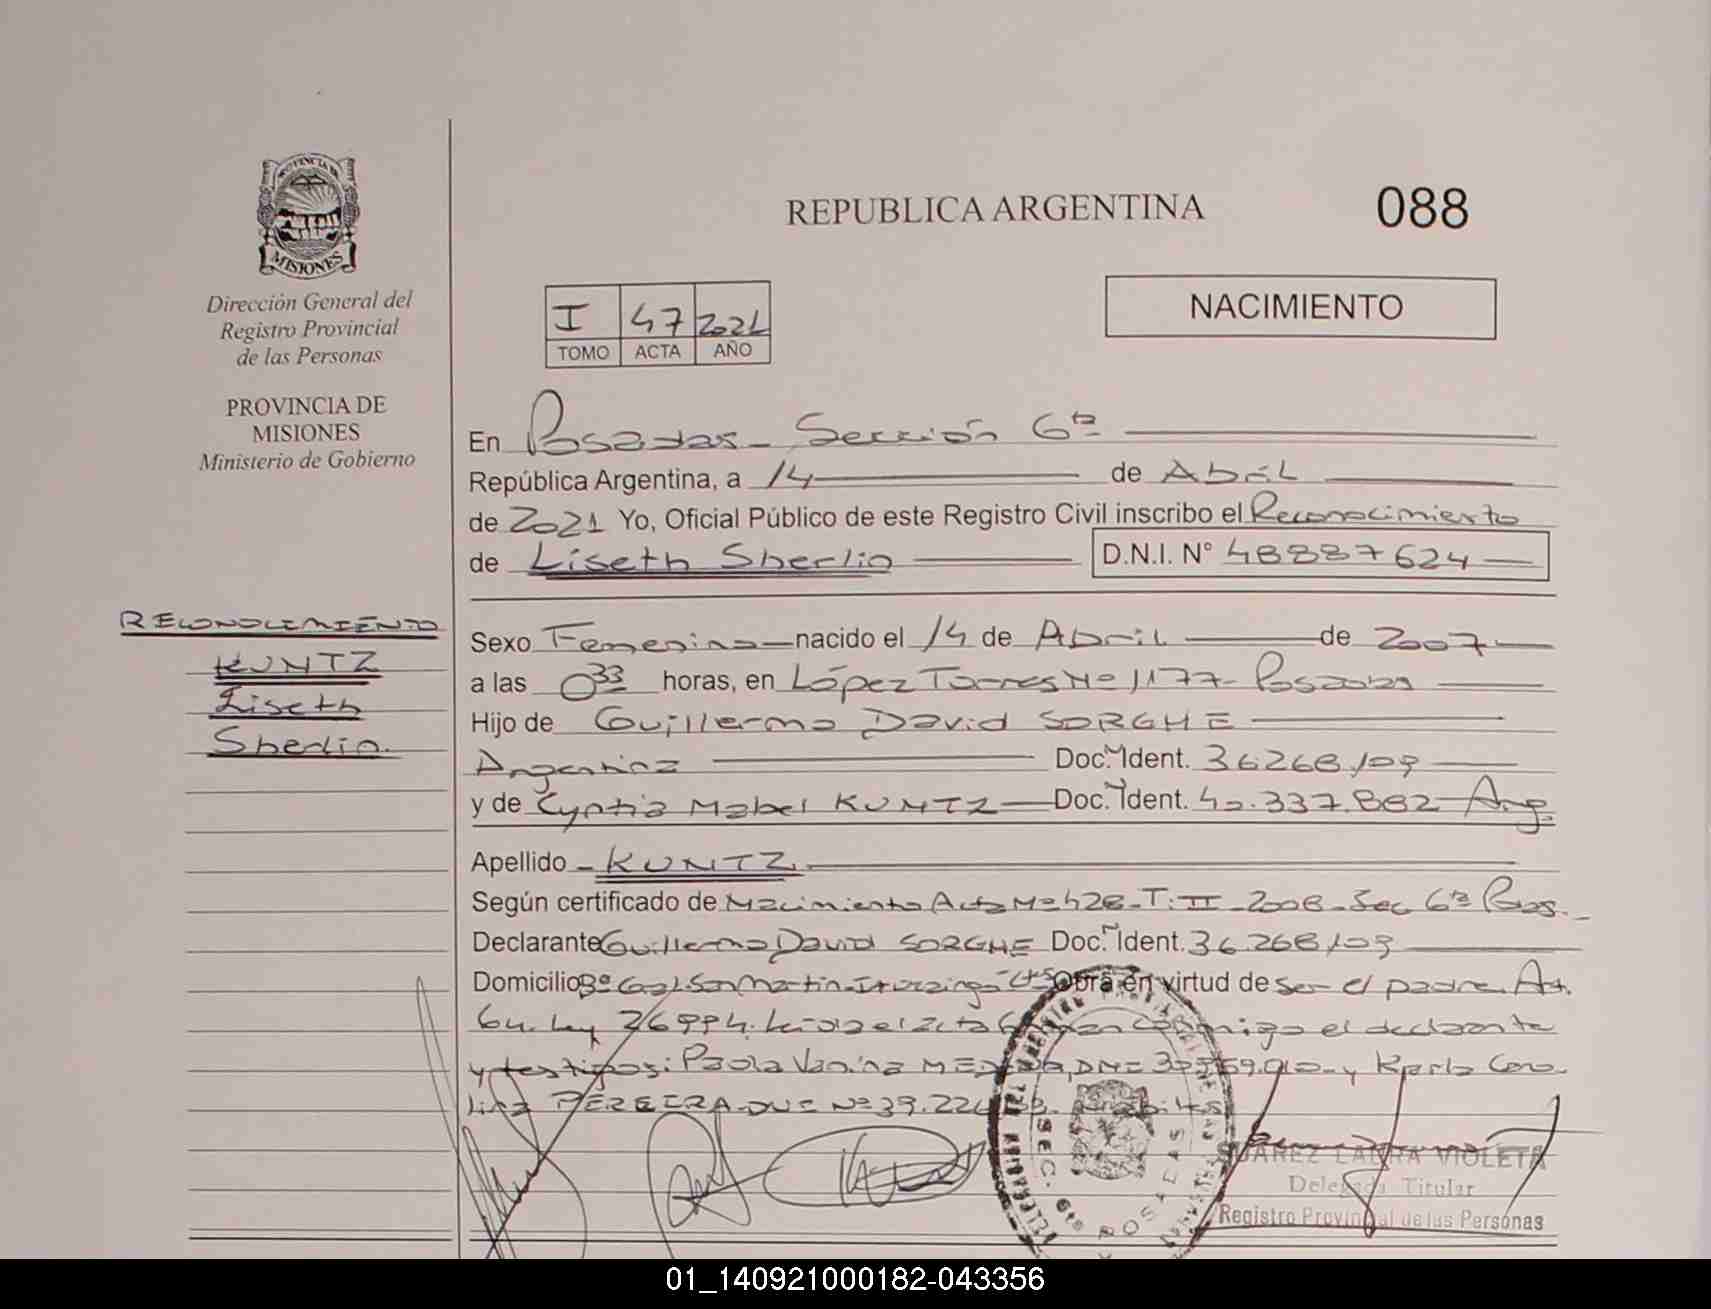 PROVINCIA DE
MISIONES
Dirección General del
Registro Provincial
de las Personas
PROVINCIA DE
MISIONES
Ministerio de Gobierno
RECONOCIMIENTO
KUNTZ
Liseth
Sherlin.
REPUBLICA ARGENTINA
088
I 47 2021
TOMO ACTA AÑO
NACIMIENTO
En Posadas - Sección 6ta
República Argentina, a 14 de Abril
de 2021 Yo, Oficial Público de este Registro Civil inscribo el Reconocimiento
de Liseth Sherlin D.N.I. N° 48887624
Sexo Femenino nacido el 14 de Abril de 2007
a las 0 33 horas, en López Torres Nº 1177 - Posadas
Hijo de Guillermo David SORGHE
Argentina Doc. Ident. 36.268.109
y de Cyntia Mabel KUNTZ Doc. Ident. 40.337.882 Arg.
Apellido - KUNTZ
Según certificado de Nacimiento Acta Nº 428 - T: II - 2008 - Sec 6ta Pos.
Declarante Guillermo David SORGHE Doc. Ident. 36.268.109
Domicilio Bº Gral San Martin - Ituzaingó - Ctes Obra en virtud de ser el padre. Art.
64. Ley 26994. Leída el acta conmigo el declarante
y testigos: Paola Vanina DNI y Karla Caro-
lina PEREIRA - DNI Nº 39.224
SEC. 6ta
POSADAS
SUAREZ LAURA VIOLETA
Delegada Titular
Registro Provincial de las Personas
01_140921000182-043356